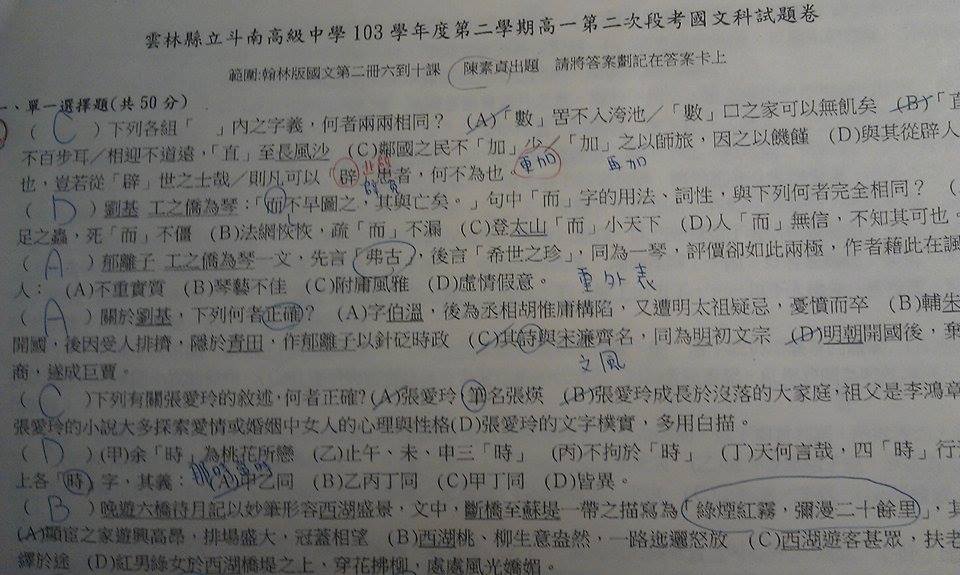 雲林縣立斗南高級中學 103 學年度第二學期高一第二次段考國文科試題卷
範圍:翰林版國文第二冊六到十課 陳素貞出題 請將答案劃記在答案卡上
一、單一選擇題(共 50 分)
( C )下列各組「 」內之字義，何者兩兩相同？ (A)「數」罟不入洿池／「數」口之家可以無飢矣 (B)「直
不百步耳／相迎不道遠，「直」至長風沙 (C)鄰國之民不「加」少／「加」之以師旅，因之以饑饉 (D)與其從辟人
更加 再加
也，豈若從「辟」世之士哉／則凡可以「辟」患者，何不為也
( D )劉基 工之僑為琴:「而不早圖之，其與亡矣。」句中「而」字的用法、詞性，與下列何者完全相同？
足之蟲，死「而」不僵 (B)法網恢恢，疏「而」不漏 (C)登太山「而」小天下 (D)人「而」無信，不知其可也。
( A )郁離子 工之僑為琴一文，先言「弗古」，後言「希世之珍」，同為一琴，評價卻如此兩極，作者藉此在諷
人： (A)不重實質 (B)琴藝不佳 (C)附庸風雅 (D)虛情假意。 重外表
( A )關於劉基，下列何者正確？ (A)字伯溫，後為丞相胡惟庸構陷，又遭明太祖疑忌，憂憤而卒 (B)輔朱
開國，後因受人排擠，隱於青田，作郁離子以針砭時政 (C)其詩與宋濂齊名，同為明初文宗 (D)明朝開國後，棄
文風
商，遂成巨賈。
( C )下列有關張愛玲的敘述,何者正確?(A)張愛玲 筆名張煐 (B)張愛玲成長於沒落的大家庭,祖父是李鴻章
張愛玲的小說大多探索愛情或婚姻中女人的心理與性格(D)張愛玲的文字樸實，多用白描。
( D )(甲)余「時」為桃花所戀 (乙)止午、未、申三「時」 (丙)不拘於「時」 (丁)天何言哉，四「時」行
上各「時」字，其義： (A)甲乙同 (B)乙丙丁同 (C)甲丁同 (D)皆異。
( B )晚遊六橋待月記以妙筆形容西湖盛景，文中，斷橋至蘇堤一帶之描寫為「綠煙紅霧，彌漫二十餘里」，其
(A)顯宦之家遊興高昂，排場盛大，冠蓋相望 (B)西湖桃、柳生意盎然，一路迤邐怒放 (C)西湖遊客甚眾，扶老
繹於途 (D)紅男綠女於西湖橋堤之上，穿花拂柳，處處風光嬌媚。